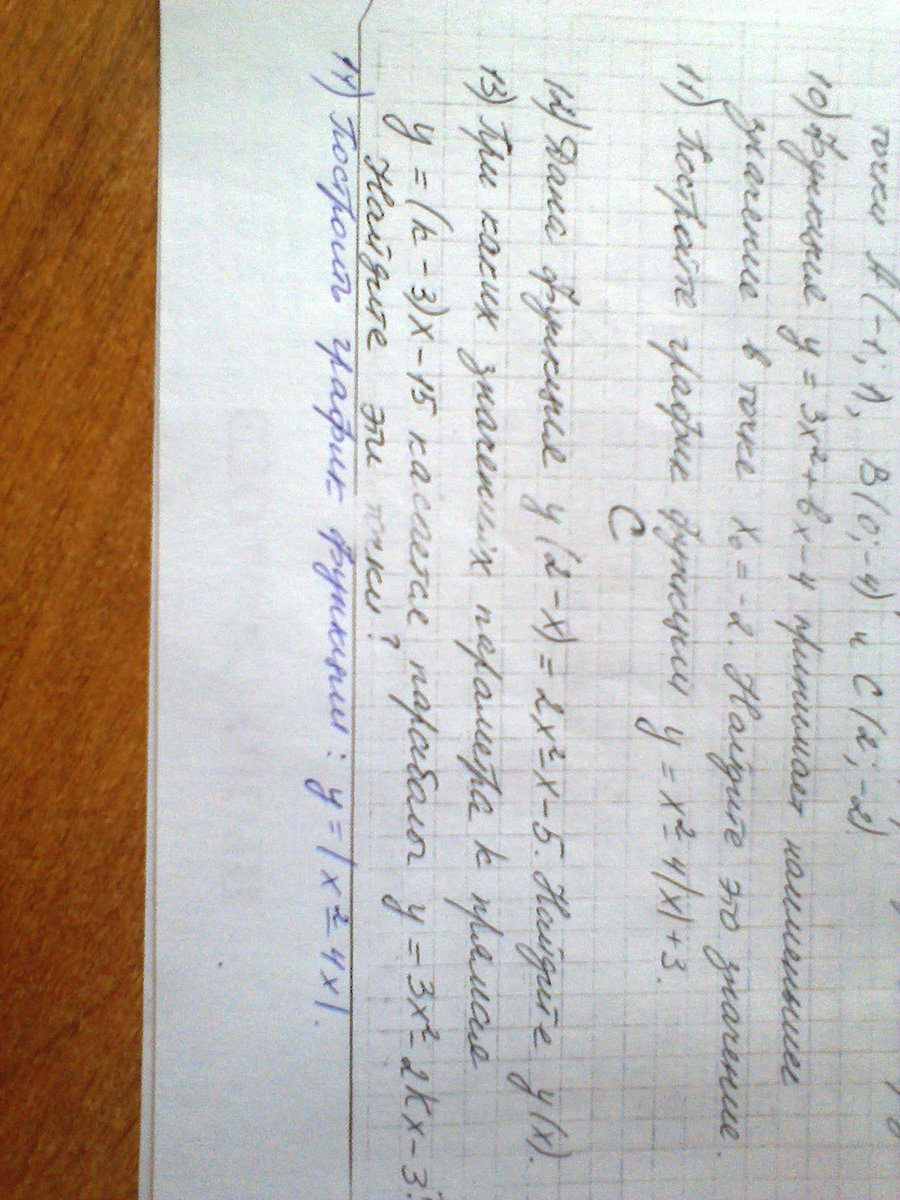 точки A(-1; 1), B(0; -4) и C(2; -2)
10) Функция y = 3x² + bx - 4 принимает наименьшее
значение в точке x₀ = -2. Найдите это значение.
11) Постройте график функции y = x² - 4|x| + 3.
C
12) Дана функция y(2-x) = 2x² - x - 5. Найдите y(x).
13) При каких значениях параметра k прямая
y = (k - 3)x - 15 касается параболы y = 3x² - 2kx - 3?
Найдите эти точки?
14) Построить график функции: y = |x² - 4x|.